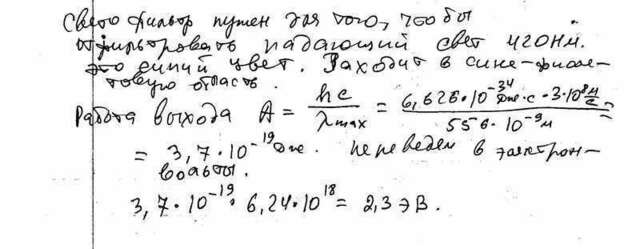 Светофильтр нужен для того, чтобы
отфильтровать падающий свет 410нм.
это синий цвет. Заходит в сине-фиоле-
товую область.
Работа выхода A = hc/λmax = 6,626·10^-34 Дж·с·3·10^8 м/с / 556·10^-9 м =
= 3,7·10^-19 Дж. Переведем в электрон-
вольты.
3,7·10^-19·6,24·10^18 = 2,3 эВ.